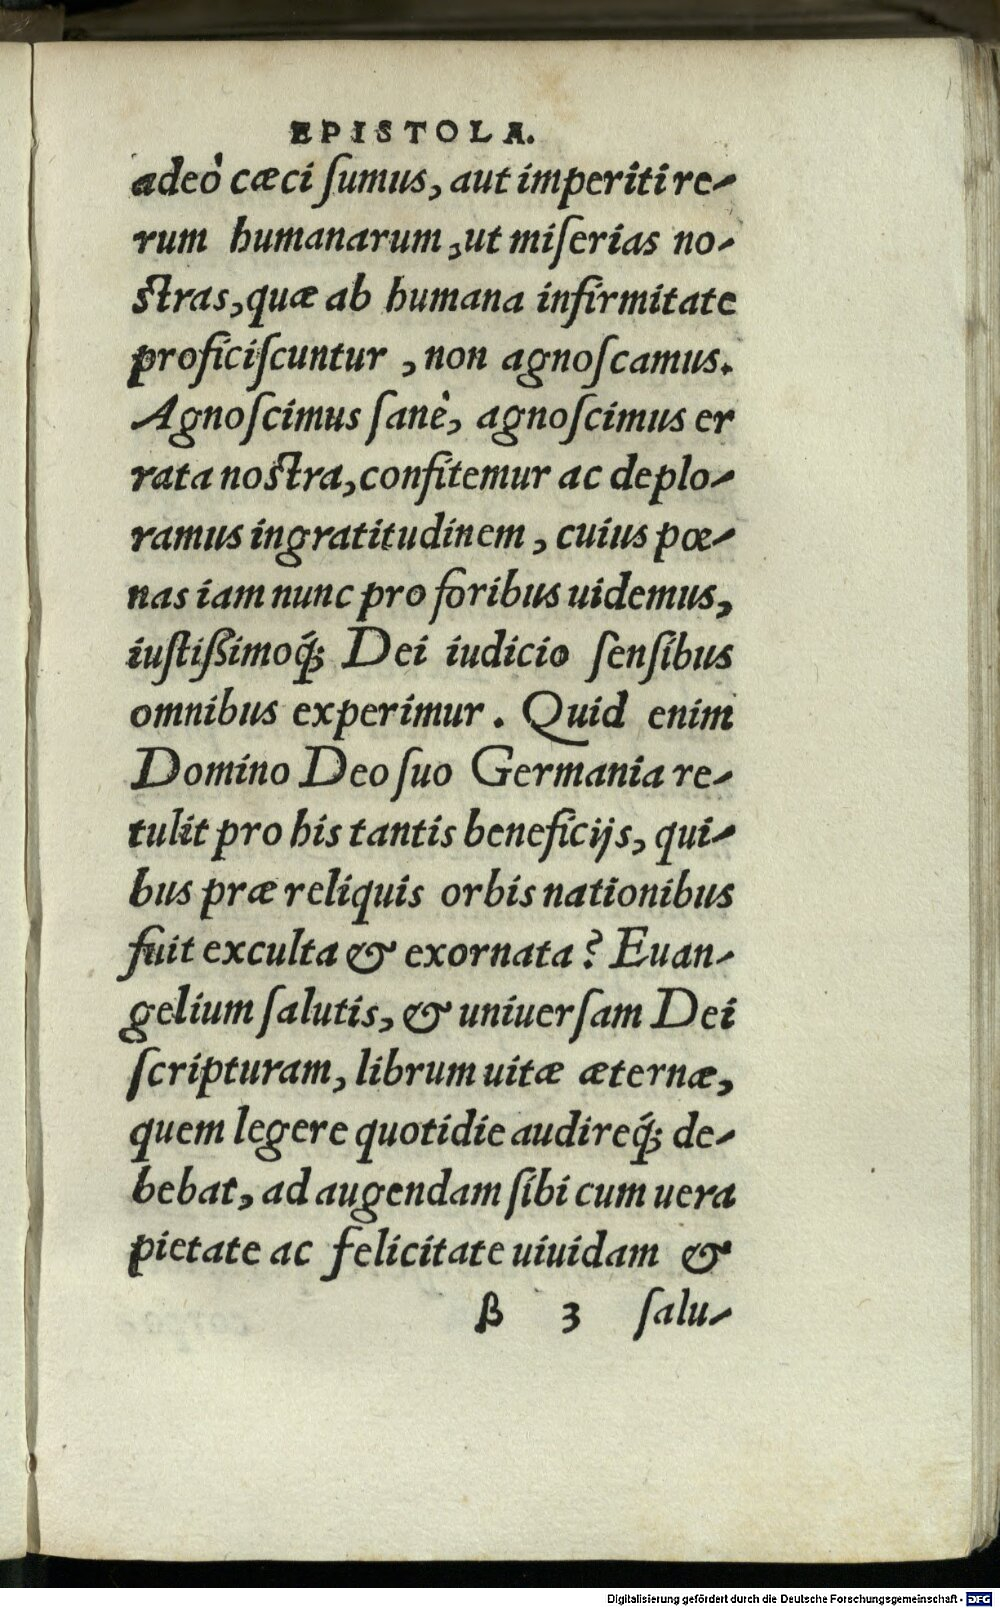 EPISTOLA.
adeò cæci ſumus, aut imperiti re-
rum humanarum, ut miſerias no-
ſtras, quæ ab humana infirmitate
proficiſcuntur, non agnoſcamus.
Agnoſcimus ſanè, agnoſcimus er
rata noſtra, confitemur ac deplo-
ramus ingratitudinem, cuius pœ-
nas iam nunc pro foribus uidemus,
iuſtißimoq́; Dei iudicio ſenſibus
omnibus experimur. Quid enim
Domino Deo ſuo Germania re-
tulit pro his tantis beneficijs, qui-
bus præ reliquis orbis nationibus
fuit exculta & exornata? Euan-
gelium ſalutis, & uniuerſam Dei
ſcripturam, librum uitæ æternæ,
quem legere quotidie audireq́; de-
bebat, ad augendam ſibi cum uera
pietate ac felicitate uiuidam &
β 3 ſalu-
Digitalisierung gefördert durch die Deutsche Forschungsgemeinschaft - DFG